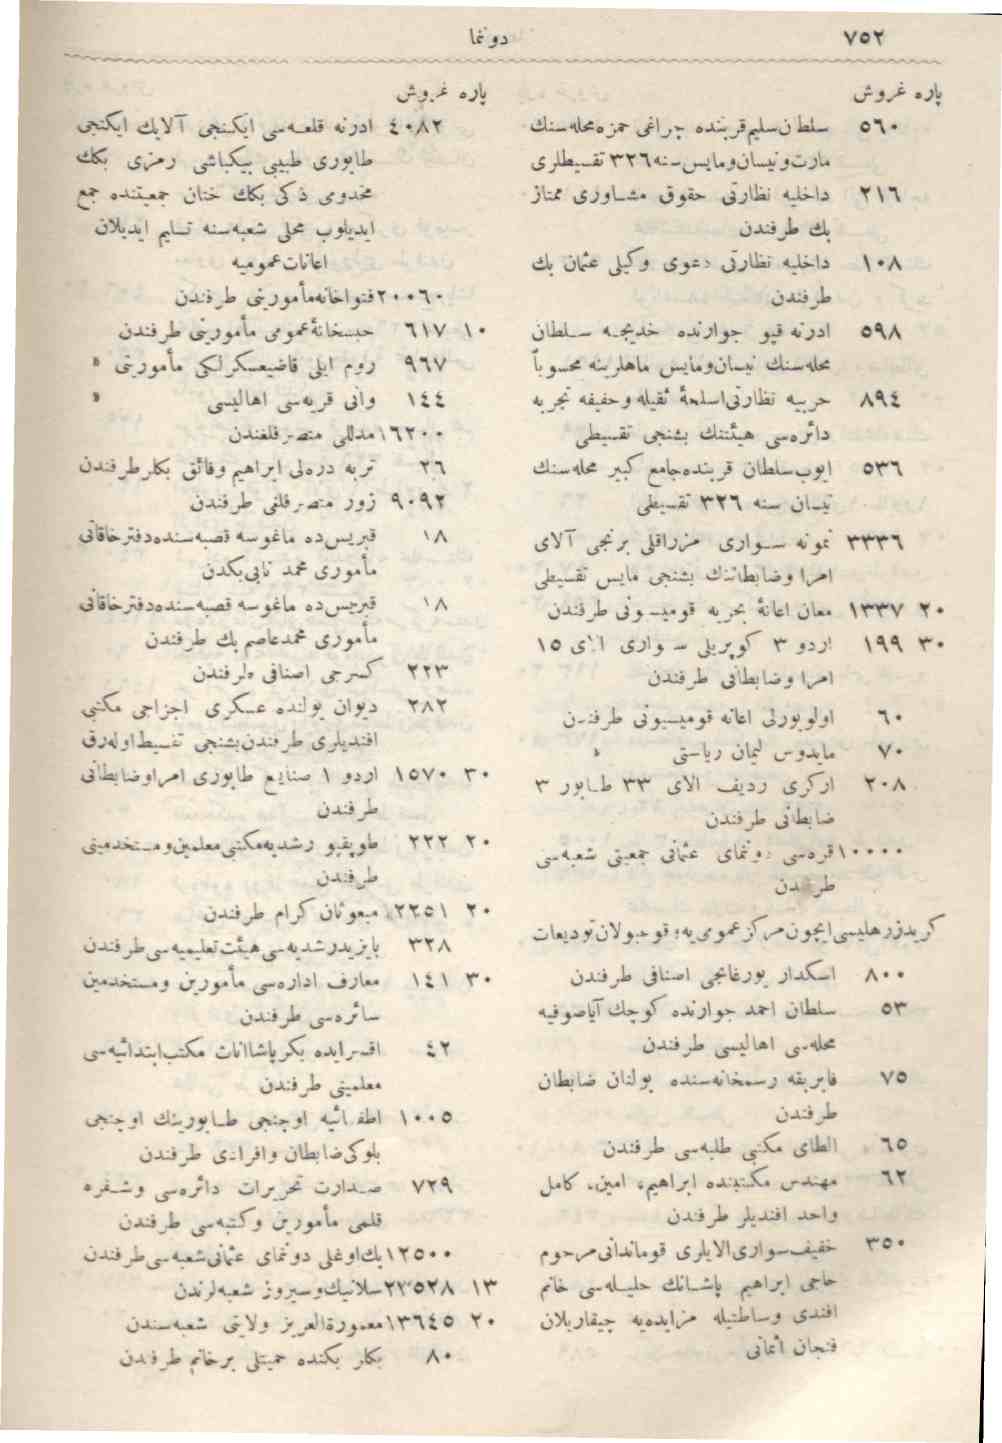 ٧٥٢
دونما
پاره غروش
٥٦٠ سلطان سليم قربنده چراغى حمزه محله سنك
مارت ونيسان ومايس سنه ٣٢٦ تقسيطلرى
٢١٦ داخليه نظارتى حقوق مشاورى ممتاز
بك طرفندن
١٠٨ داخليه نظارتى دعوى وكيلى عثمان بك
طرفندن
٥٩٨ ادرنه قپو جوارنده خديجه سلطان
محله سنك نيسان ومايس ماهلرينه محسوباً
٨٩٤ حربيه نظارتى اسلحهٔ ثقيله وخفيفه تجربه
دائره سى هيئتنك بشنجى تقسيطى
٥٣٦ ايوب سلطان قربنده جامع كبير محله سنك
نيسان سنه ٣٢٦ تقسيطى
٣٣٣٦ نمونه سوارى مزراقلى برنجى آلاى
امرا وضابطاننك بشنجى مايس تقسيطى
٢٠ ١٣٣٧ معان اعانهٔ بحريه قوميسونى طرفندن
٣٠ ١٩٩ اردو ٣ كوپريلى سوارى الاى ١٥
امرا وضابطانى طرفندن
٦٠ اولوبورلى اعانه قوميسيونى طرفندن
٧٠ مايدوس ليمان رياستى »
٢٠٨ اركرى رديف الاى ٣٣ طابور ٣
ضابطانى طرفندن
١٠٠٠٠ قره سى دونماى عثمانى جمعيتى شعبه سى
طرفندن
كريدزرهليسى ايچون مركز عمومى يه وقوعبولان توديعات
٨٠٠ اسكدار يورغانجى اصنافى طرفندن
٥٣ سلطان احمد جوارنده كوچك آياصوفيه
محله سى اهاليسى طرفندن
٧٥ فابريقه رسمخانه سنده بولنان ضابطان
طرفندن
٦٥ الطاى مكتبى طلبه سى طرفندن
٦٢ مهندس مكتبنده ابراهيم، امين، كامل
واحد افنديلر طرفندن
٣٥٠ خفيف سوارى الايلرى قوماندانى مرحوم
حاجى ابراهيم پاشانك حليله سى خانم
افندى وساطتيله مزايده يه چيقاريلان
فنجان اثمانى
پاره غروش
٤٠٨٢ ادرنه قلعه سى ايكنجى آلايك ايكنجى
طابورى طبيبى بيكباشى رمزى بكك
مخدومى ذكى بكك ختان جمعيتنده جمع
ايديلوب محلى شعبه سنه تسليم ايديلان
اعانات عموميه
٢٠٠٦٠ فتواخانه مأمورينى طرفندن
١٠ ٦١٧ حبسخانهٔ عمومى مأمورينى طرفندن
٩٦٧ روم ايلى قاضيعسكرلكى مأمورينى »
١٤٤ وانى قريه سى اهاليسى »
١٦٢٠٠ مدللى متصرفلغندن
٢٦ تربه دره لى ابراهيم وفائق بكلر طرفندن
٩٠٩٢ زور متصرفلغى طرفندن
١٨ قبريس ده ماغوسه قصبه سنده دفتر خاقانى
مأمورى محمد نابى بكدن
١٨ قبريس ده ماغوسه قصبه سنده دفتر خاقانى
مأمورى محمد عاصم بك طرفندن
٢٢٣ كسرجى اصنافى طرفندن
٢٨٢ ديوان يولنده عسكرى اجزاجى مكتبى
افنديلرى طرفندن بشنجى تقسيط اوله رق
٣٠ ١٥٧٠ اردو ١ صنايع طابورى امرا وضابطانى
طرفندن
٢٠ ٢٢٢ طوپقپو رشديه مكتبى معلمين ومستخدمينى
طرفندن
٢٠ ٢٢٥١ مبعوثان كرام طرفندن
٣٢٨ بايزيد رشديه سى هيئت تعليميه سى طرفندن
٣٠ ١٤١ معارف اداره سى مأمورين ومستخدمين
سائره سى طرفندن
٤٢ اقسرايده بكر پاشا اناث مكتب ابتدائيه سى
معلمينى طرفندن
١٠٠٥ اطفائيه اوچنجى طابورينك اوچنجى
بلوكى ضابطان وافرادى طرفندن
٧٢٩ صدارت تحريرات دائره سى وشفره
قلمى مأمورين وكتبه سى طرفندن
١٢٥٠٠ بك اوغلى دونماى عثمانى شعبه سى طرفندن
١٣ ٢٣٥٢٨ سلانيك وسيروز شعبه لرندن
٢٠ ١٣٦٤٥ معمورة العزيز ولايتى شعبه سندن
٨٠ بكلر بكنده حميتلى برخانم طرفندن